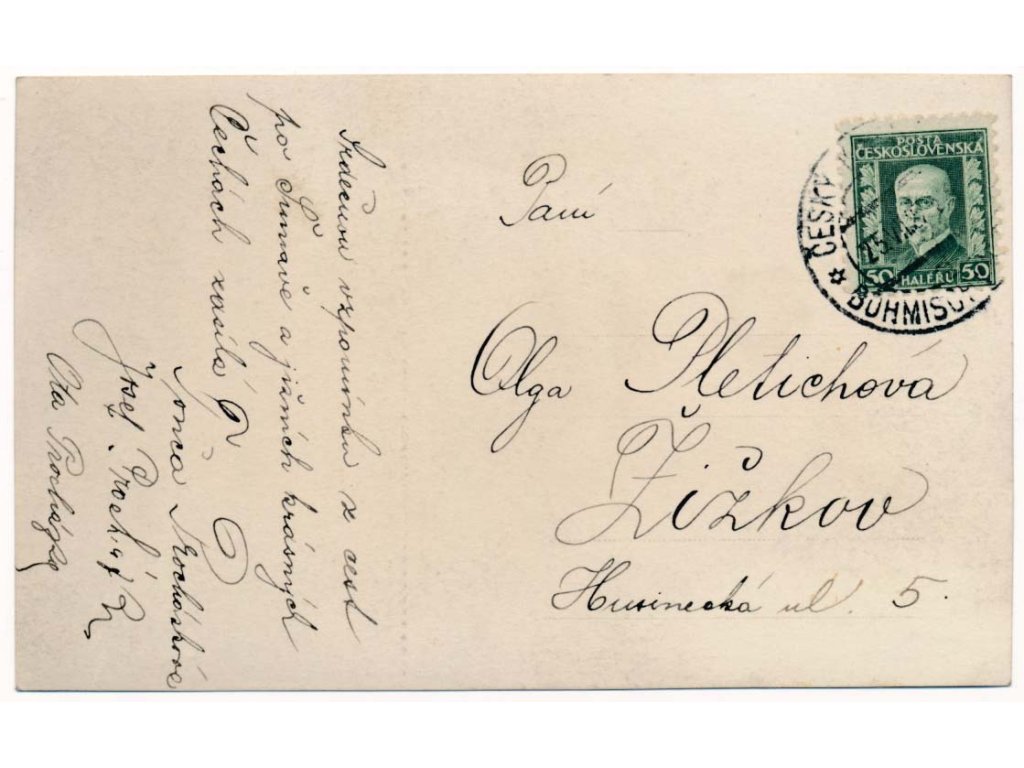 Srdečnou vzpomínku z cest
po Šumavě a jižních krásných
Čechách zasílá
Josef Procház
Ota Procházka
Paní
Olga Pletichová
Žižkov
Husinecká ul. 5.
POŠTA
ČESKOSLOVENSKÁ
50 HALÉŘŮ 50
ČESKÝ
BÖHMISCH